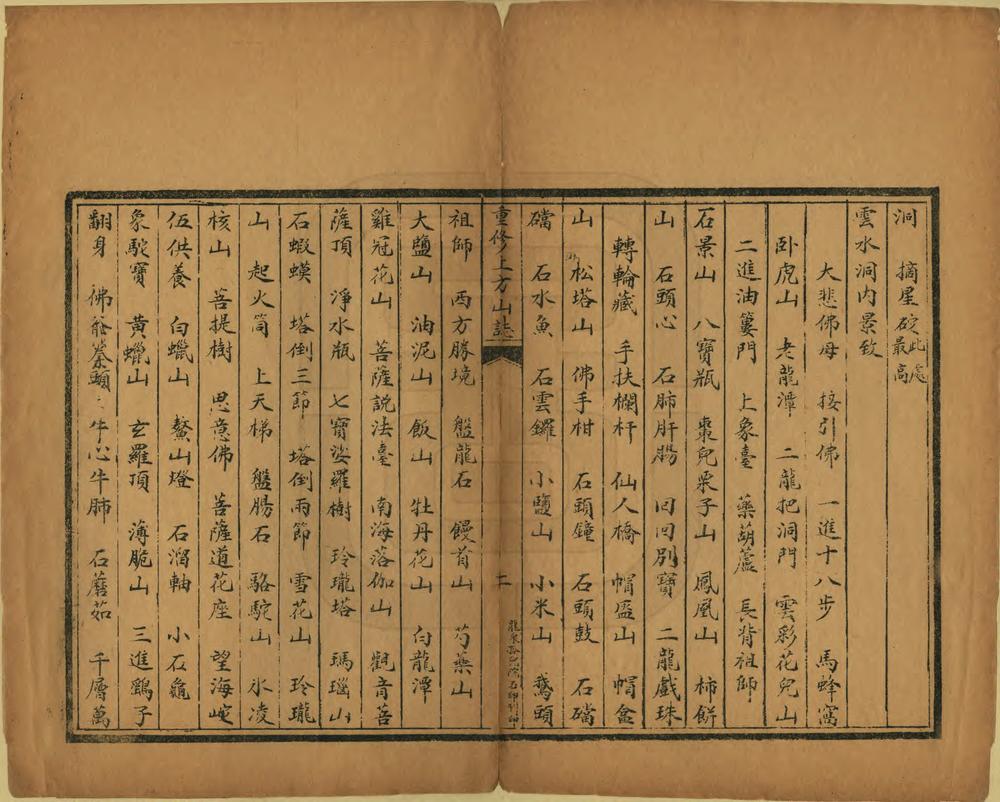 洞　摘星碇此處最高
雲水洞內景致
大悲佛母　接引佛　一進十八步　馬蜂窩
卧虎山　老龍潭　二龍把洞門　雲彩花兒山
二進油簍門　上象臺　藥葫蘆　長背祖師
石景山　八寶瓶　棗兒栗子山　鳳凰山　柿餅
山　石頭心　石肺肝腸　回回別寶　二龍戲珠
轉輪藏　手扶欄杆　仙人橋　帽盔山　帽盒
山　松塔山　佛手柑　石頭鐘　石頭鼓　石磖
礑　石水魚　石雲鑼　小鹽山　小米山　鵞頭
重修上方山誌　二
祖師　西方勝境　盤龍石　饅首山　芍藥山
大鹽山　油泥山　飯山　牡丹花山　白龍潭
雞冠花山　菩薩說法臺　南海落伽山　觀音菩
薩頂　淨水瓶　七寶娑羅樹　玲瓏塔　瑪瑙山
石蝦蟆　塔倒三節　塔倒兩節　雪花山　玲瓏
山　起火筒　上天梯　盤腸石　駱駝山　氷凌
核山　菩提樹　思意佛　菩薩道花座　望海崚
伍供養　白蠟山　鰲山燈　石溜軸　小石龜
象駝寶　黃蠟山　玄羅頂　薄脆山　三進鷂子
翻身　佛爺　牛心牛肺　石蘑茹　千層萬